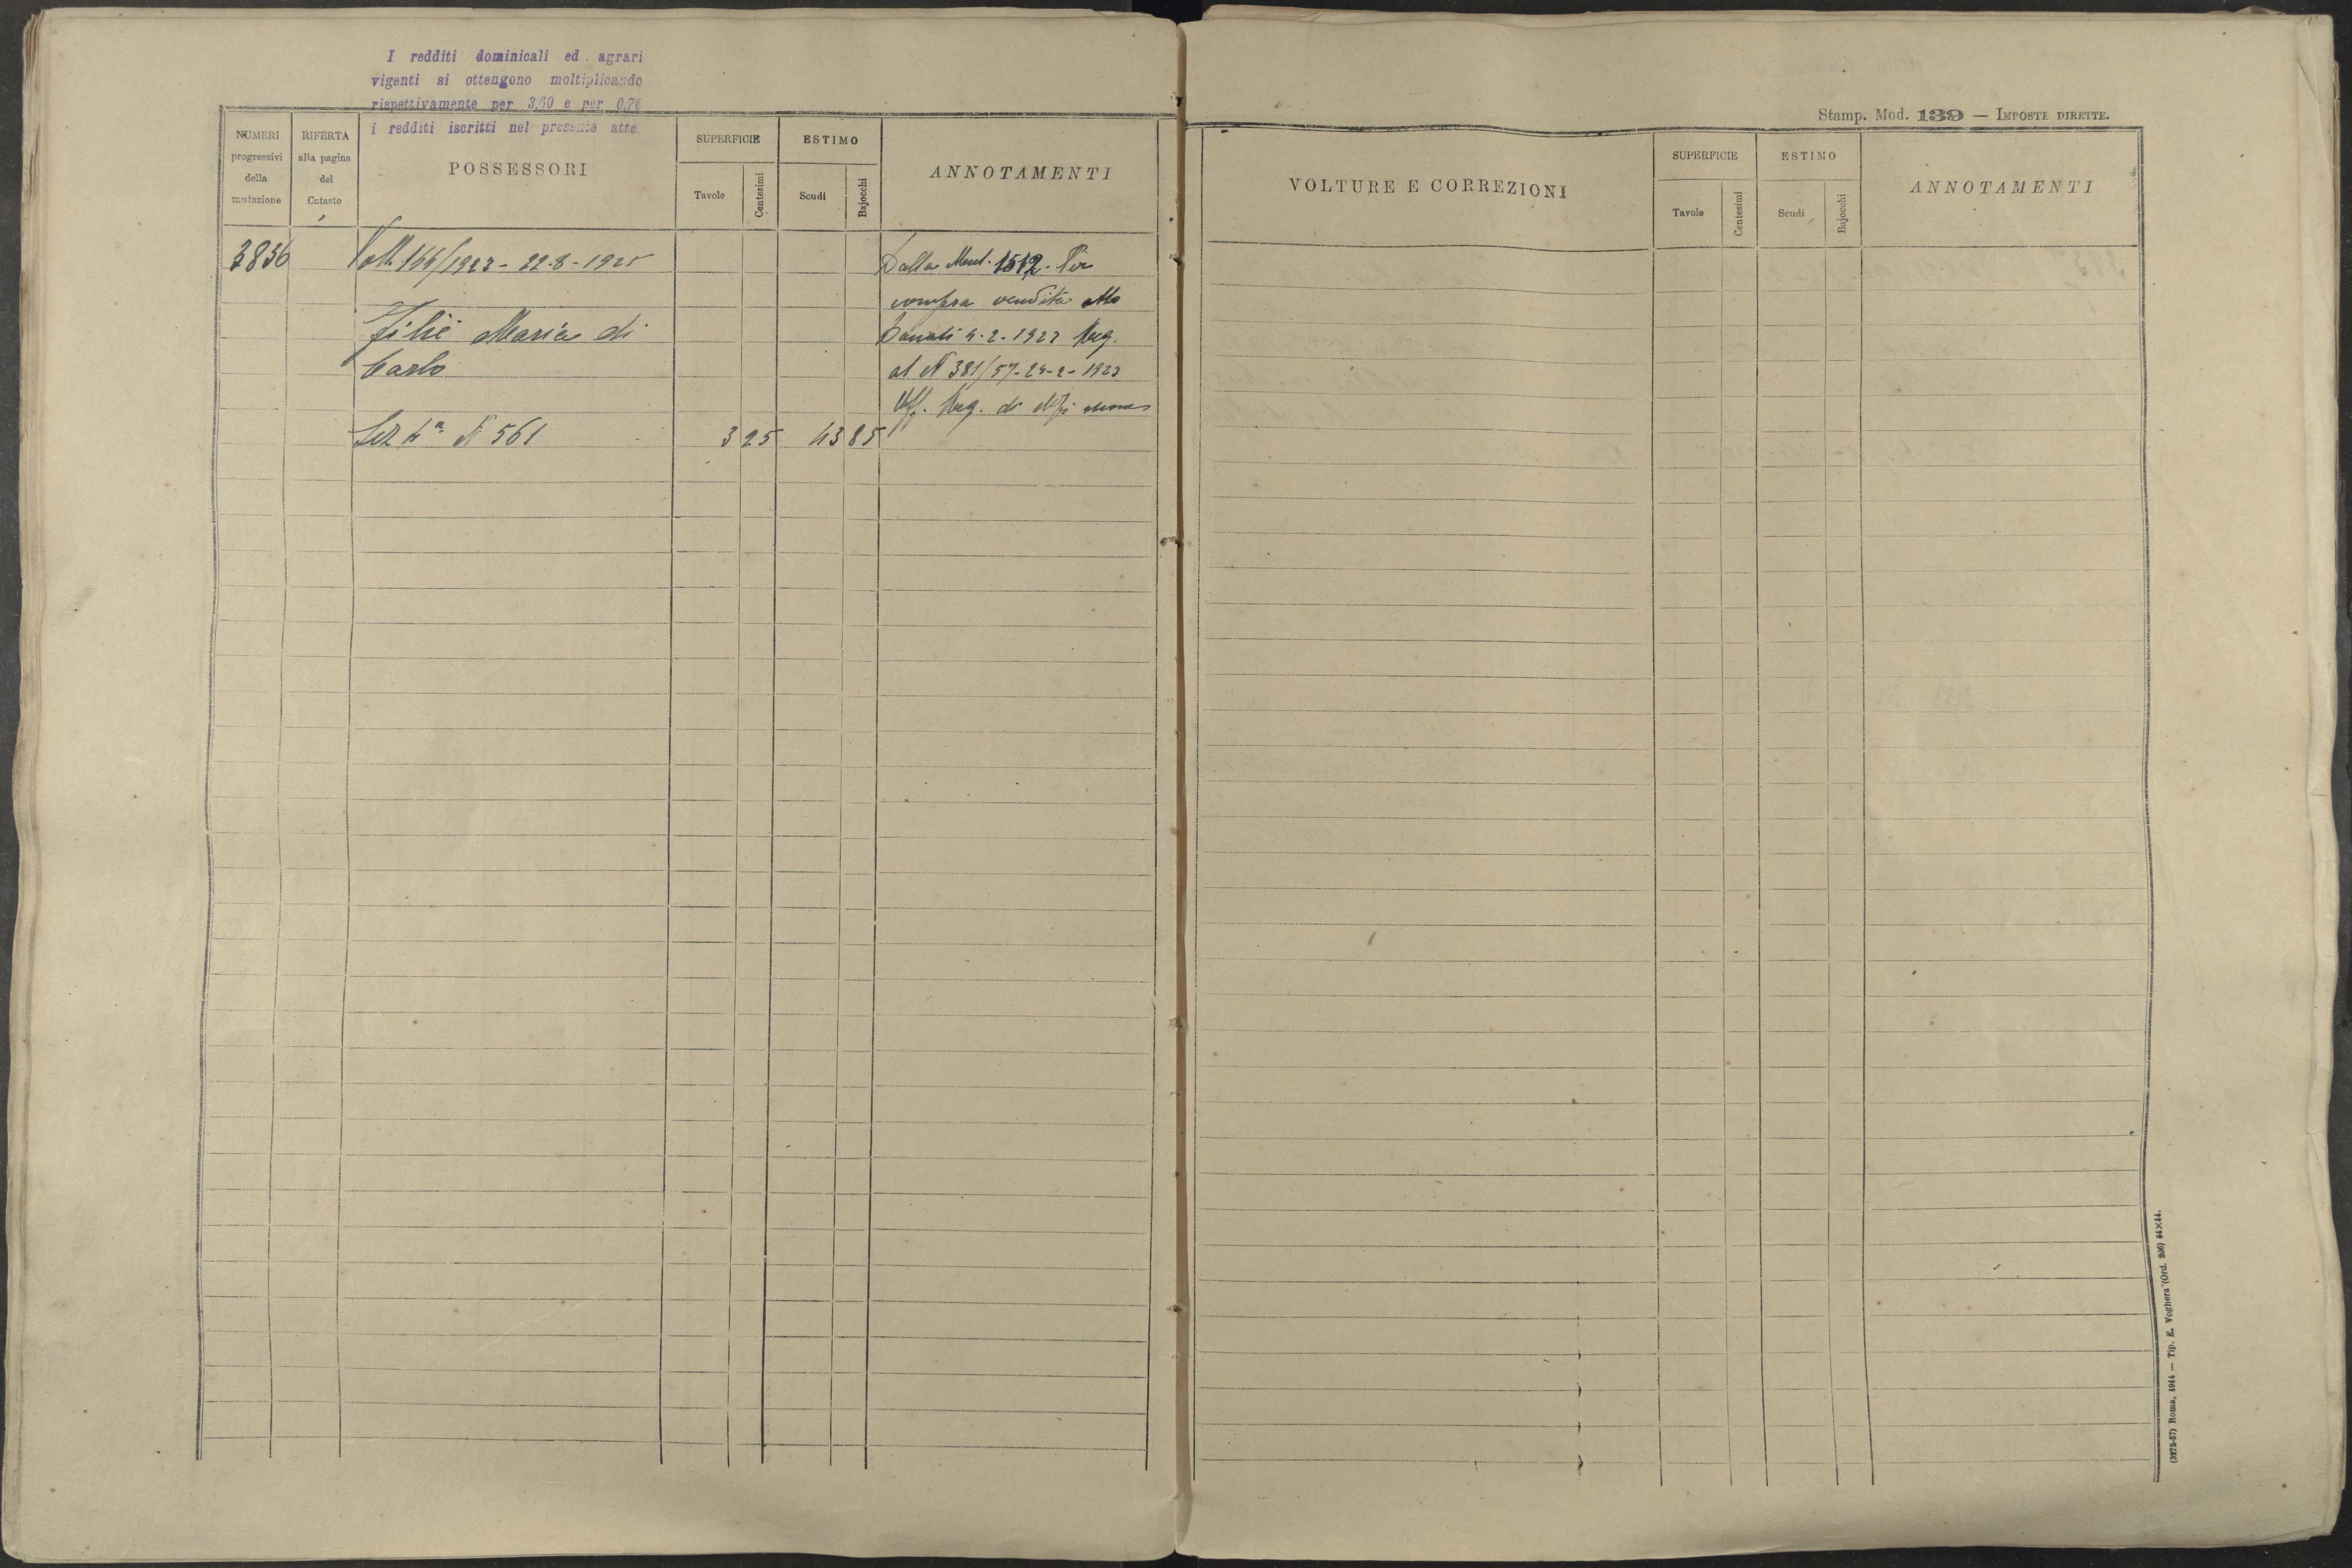 I redditi dominicali ed agrari
vigenti si ottengono moltiplicando
rispettivamente per 3,60 e per 0,76
i redditi iscritti nel presente atto
NUMERI
progressivi
della
mutazione
RIFERTA
alla pagina
del
Catasto
POSSESSORI
SUPERFICIE
Tavole
Centesimi
ESTIMO
Scudi
Bajocchi
ANNOTAMENTI
3836
Volt. 144/1923 - 22-8-1925
Dalla Mut. 1512. Per
compra vendita atto
Filiè Maria di
Donati 4-2-1923 Reg.
Carlo
al N 381/57-24-2-1923
Uff. Reg. di
Sez 4ª N 561
3 25 43 85
Stamp. Mod. 139 — IMPOSTE DIRETTE.
VOLTURE E CORREZIONI
SUPERFICIE
Tavole
Centesimi
ESTIMO
Scudi
Bajocchi
ANNOTAMENTI
(3172-57) Roma, 1914 — Tip. E. Voghera (Ord. 206) 64×44.